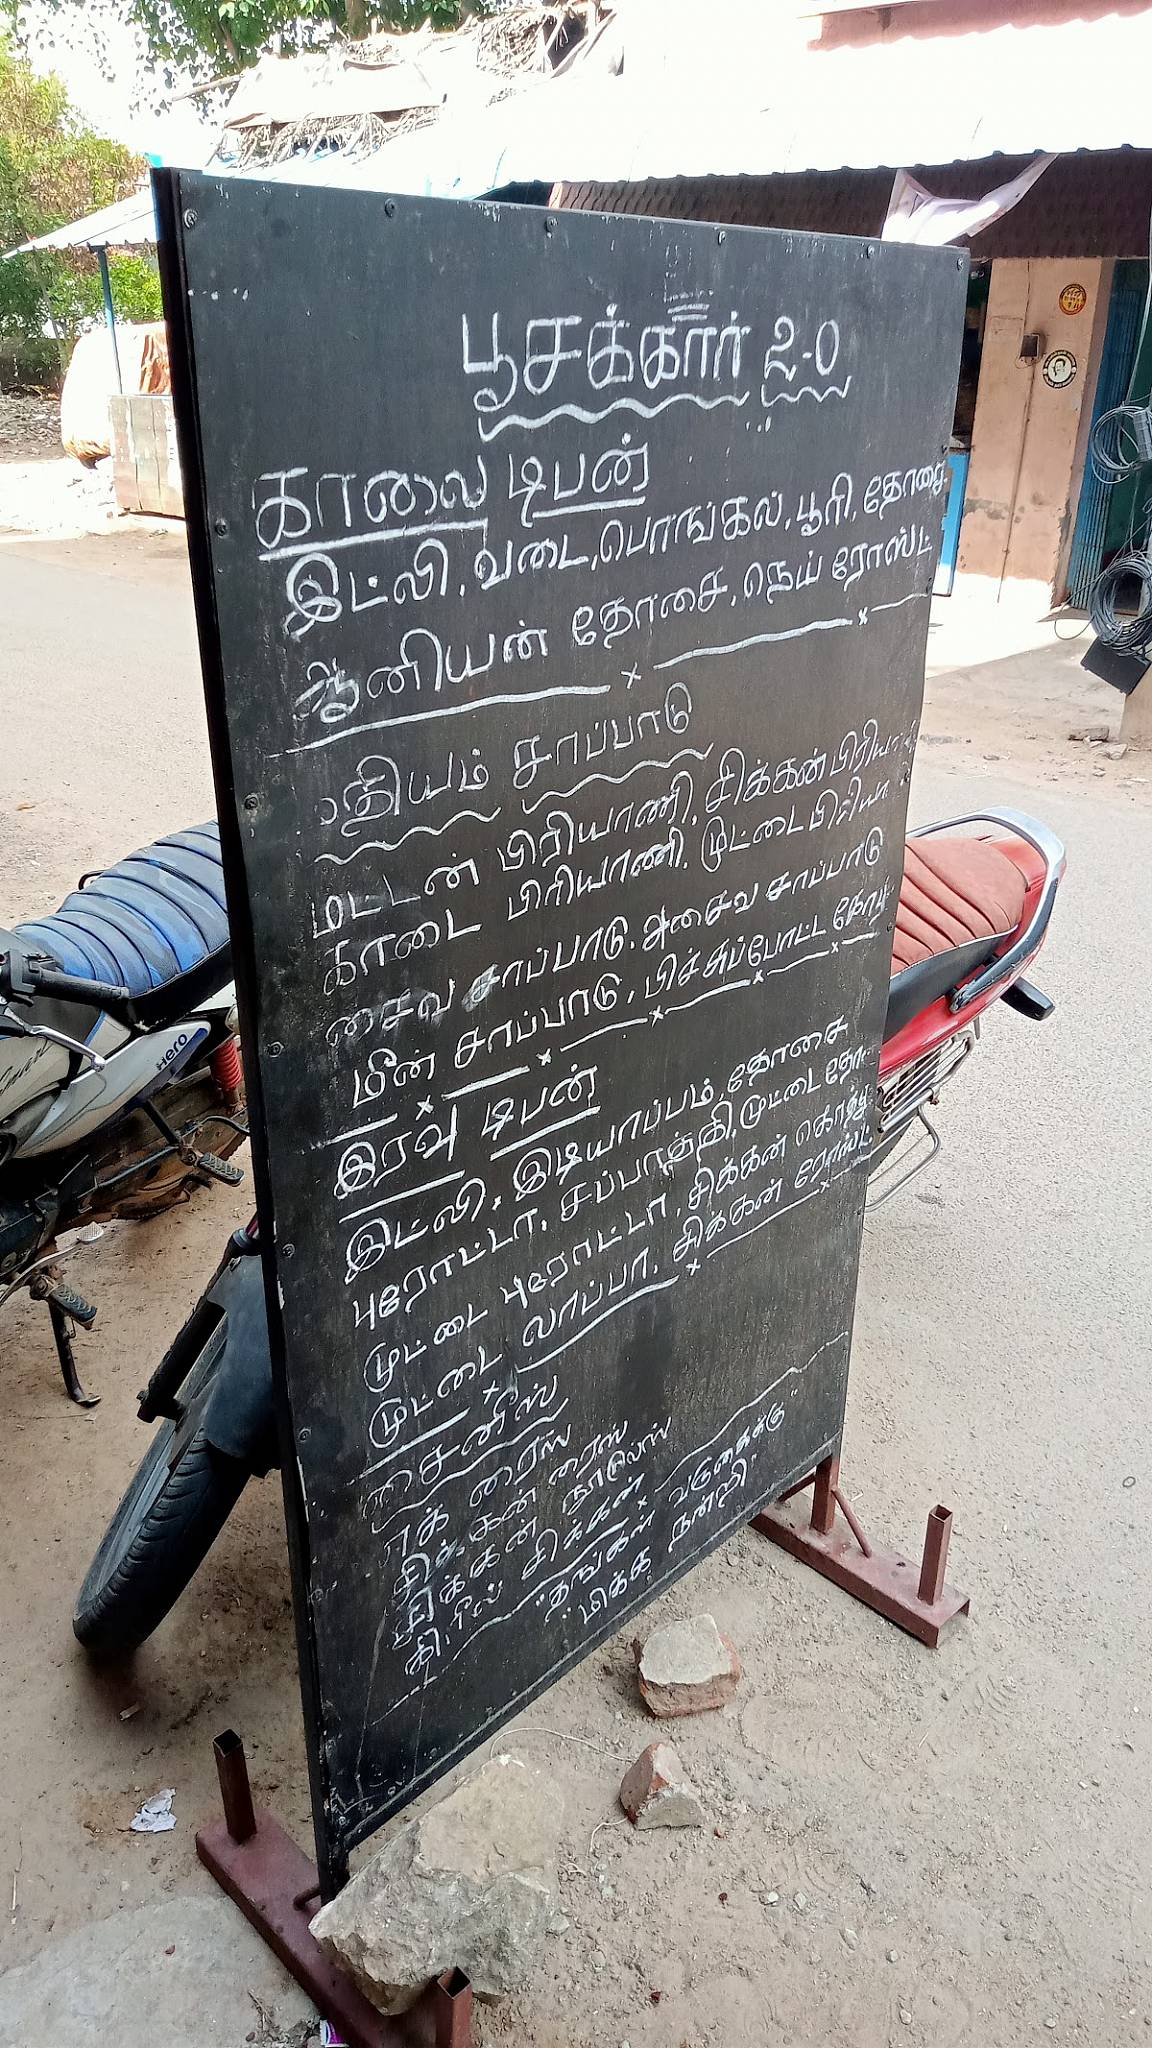 பூசக்கார் 2-0
காலை டிபன்
இட்லி, வடை, பொங்கல், பூரி, தோசை
ஆனியன் தோசை, நெய் ரோஸ்ட்
மதியம் சாப்பாடு
மட்டன் பிரியாணி, சிக்கன் பிரியாணி
காடை பிரியாணி, முட்டை பிரியா
சைவ சாப்பாடு, அசைவ சாப்பாடு
மீன் சாப்பாடு, பிச்சுப்போட்ட கோழி
இரவு டிபன்
இட்லி, இடியாப்பம், தோசை
புரோட்டா, சப்பாத்தி, முட்டை தோ
முட்டை புரோட்டா, சிக்கன் கொத்து
முட்டை லாப்பா, சிக்கன் ரோஸ்ட்
சைனீஸ்
எக் ரைஸ்
சிக்கன் ரைஸ்
சிக்கன் நூடுலஸ்
கிரில் சிக்கன்
"தங்கள் வருகைக்கு"
"மிக்க நன்றி"
Hero